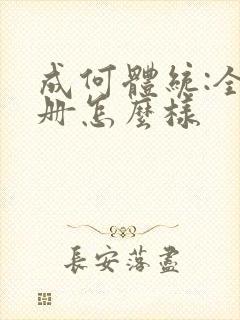 成何體統:全
冊怎麼樣
長安落盡